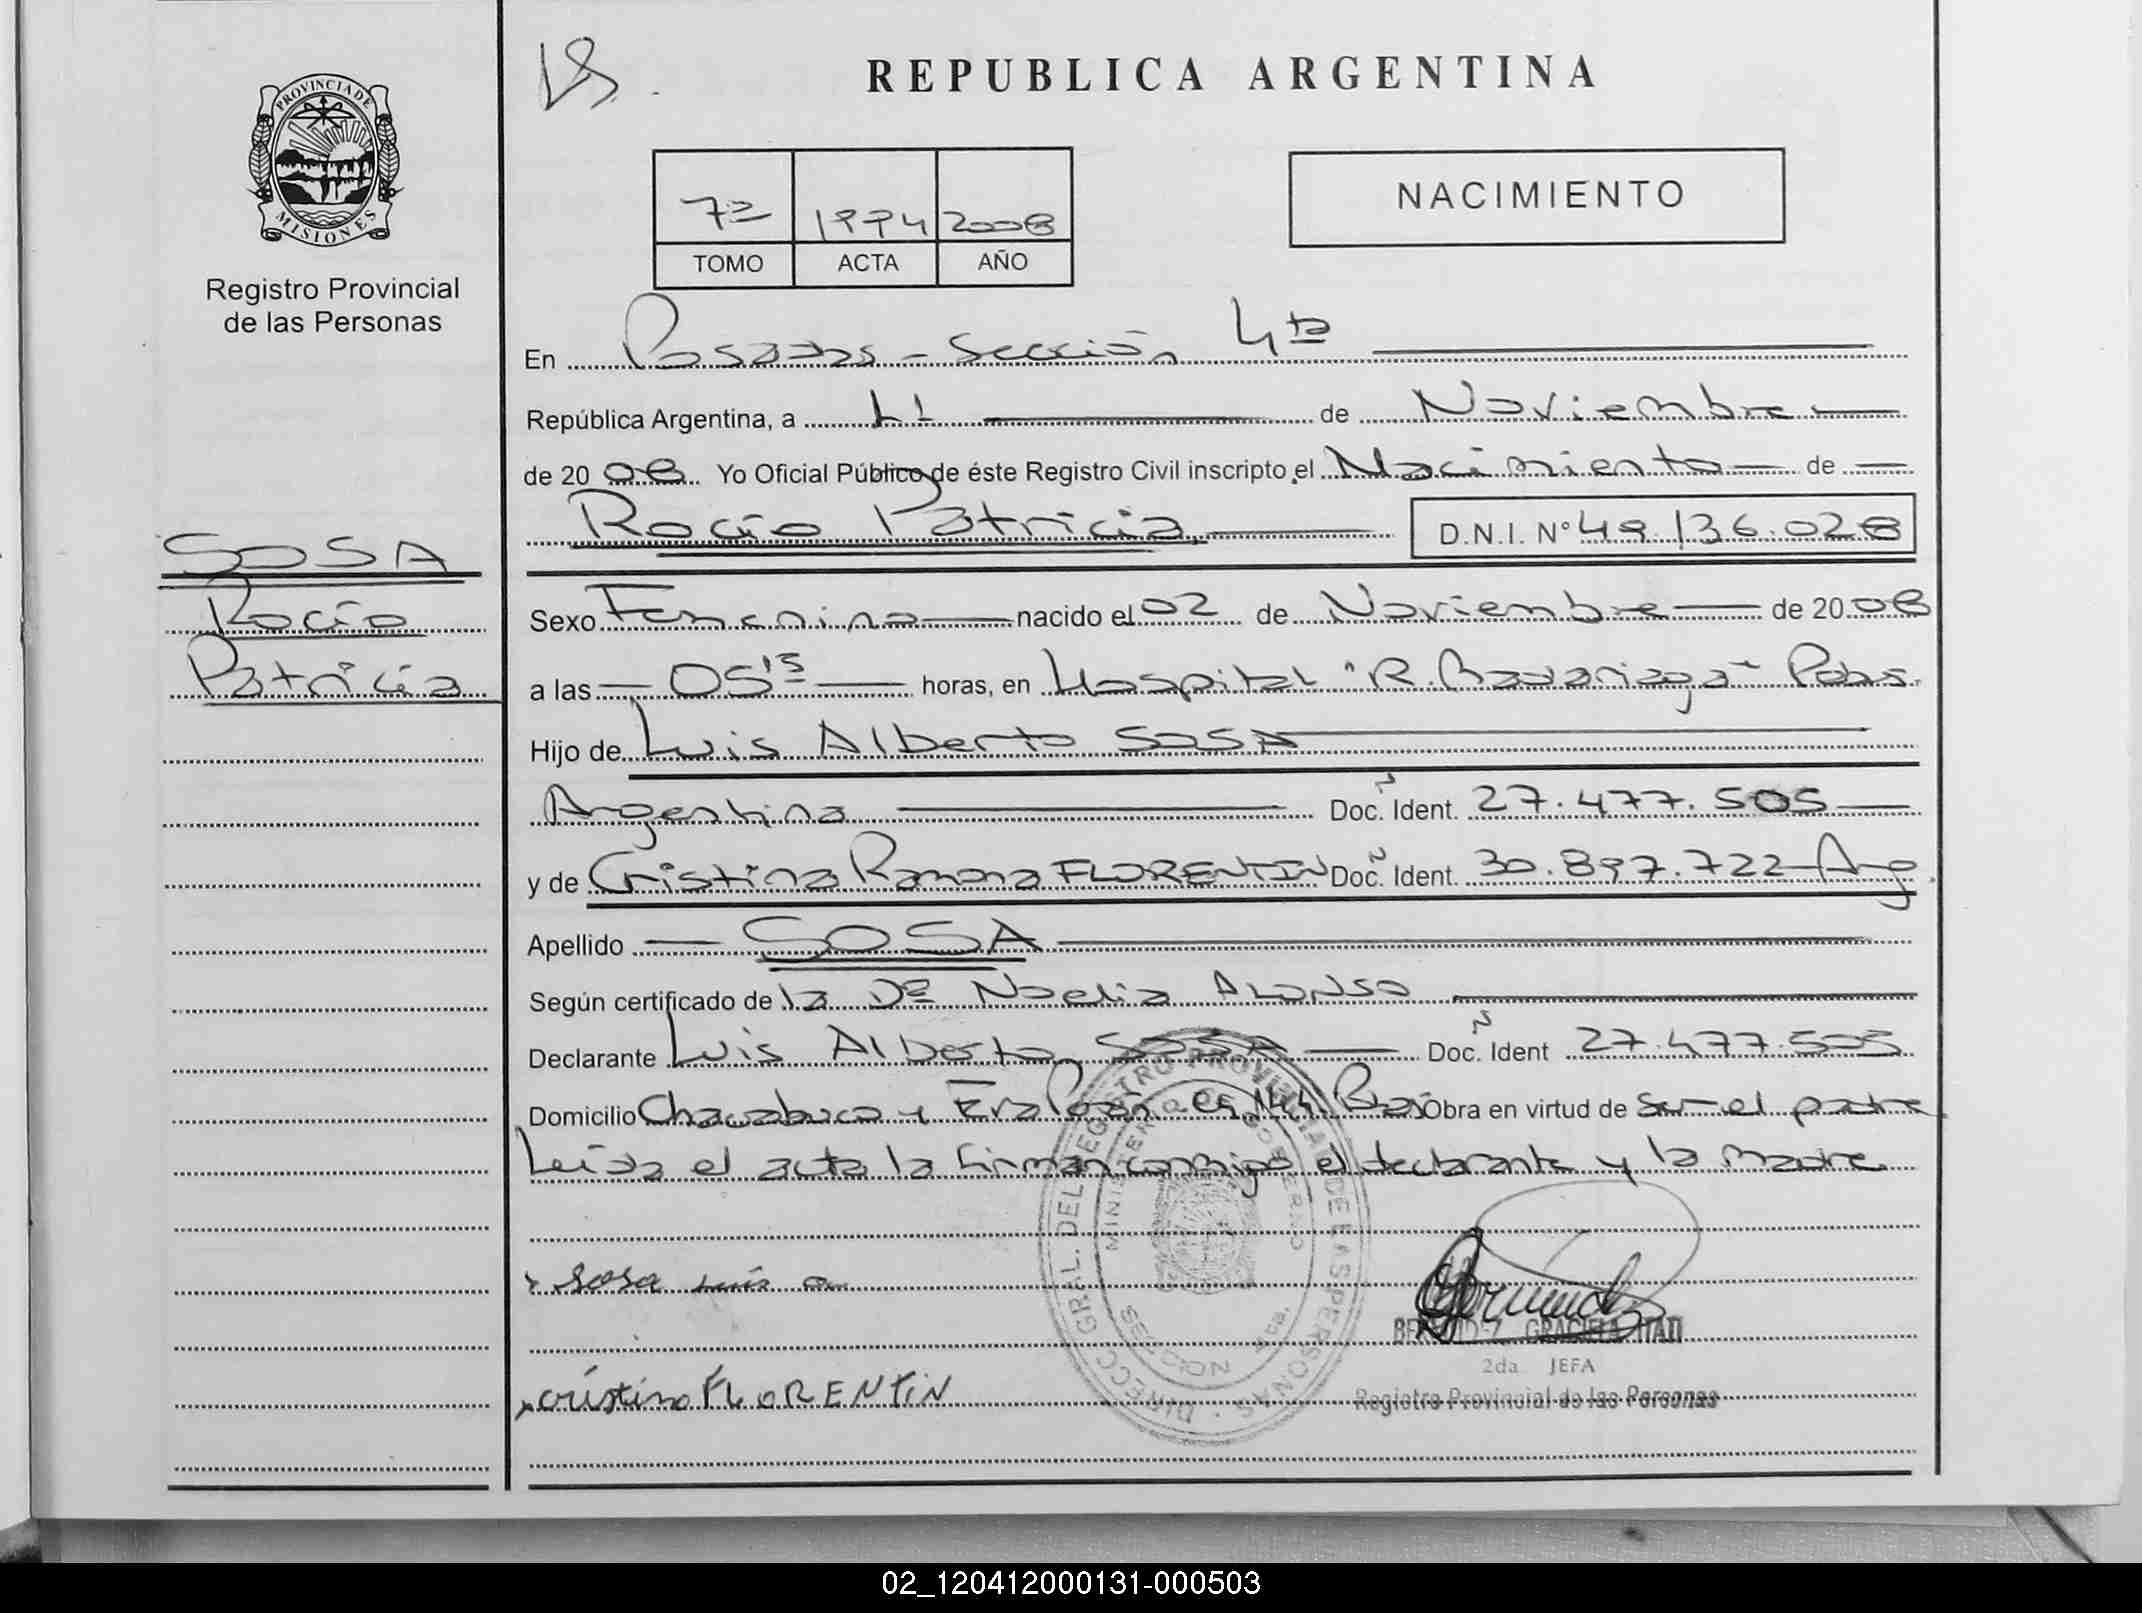 REPUBLICA ARGENTINA
PROVINCIA DE
MISIONES
Registro Provincial
de las Personas
NACIMIENTO
7º 1994 2008
TOMO ACTA AÑO
En Posadas - Sección 4ta
República Argentina, a 11 de Noviembre
de 2008 Yo Oficial Público de éste Registro Civil inscripto el Nacimiento de
Rocío Patricia D.N.I. Nº 49.136.028
SOSA
Rocío
Patricia
Sexo Femenino nacido el 02 de Noviembre de 2008
a las 05 15 horas, en Hospital "R. Madariaga" Pdas.
Hijo de Luis Alberto SOSA
Argentina Doc. Ident. 27.477.505
y de Cristina Ramona FLORENTIN Doc. Ident. 30.897.722 Arg.
Apellido SOSA
Según certificado de la Dra Noelia ALONSO
Declarante Luis Alberto SOSA Doc. Ident 27.477.505
Domicilio Chacabuco y Eva Perón 144 Obra en virtud de Ser el padre
Leída el acta la firman conmigo el declarante y la madre
DIRECC. GRAL. DEL REGISTRO PROVINCIAL DE LAS PERSONAS
Sosa Luis a
GRACIELA ITATI
2da JEFA
Registro Provincial de las Personas
x cristina FLORENTIN
02_120412000131-000503